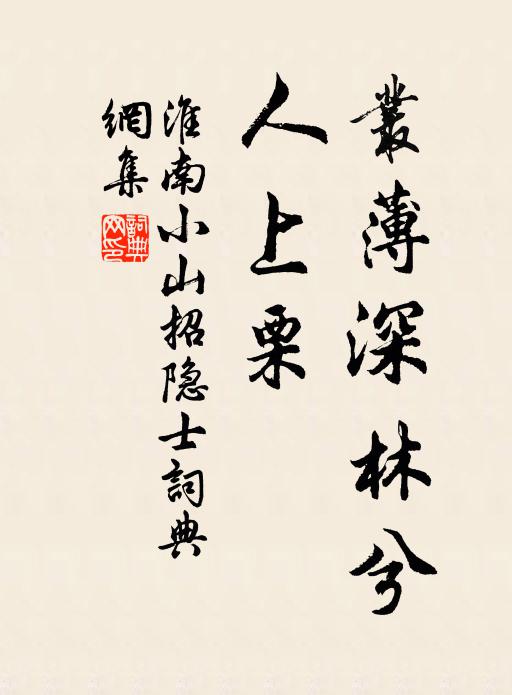 叢薄深林兮
人上栗
淮南小山招隐士詞典
網集
詞典网印